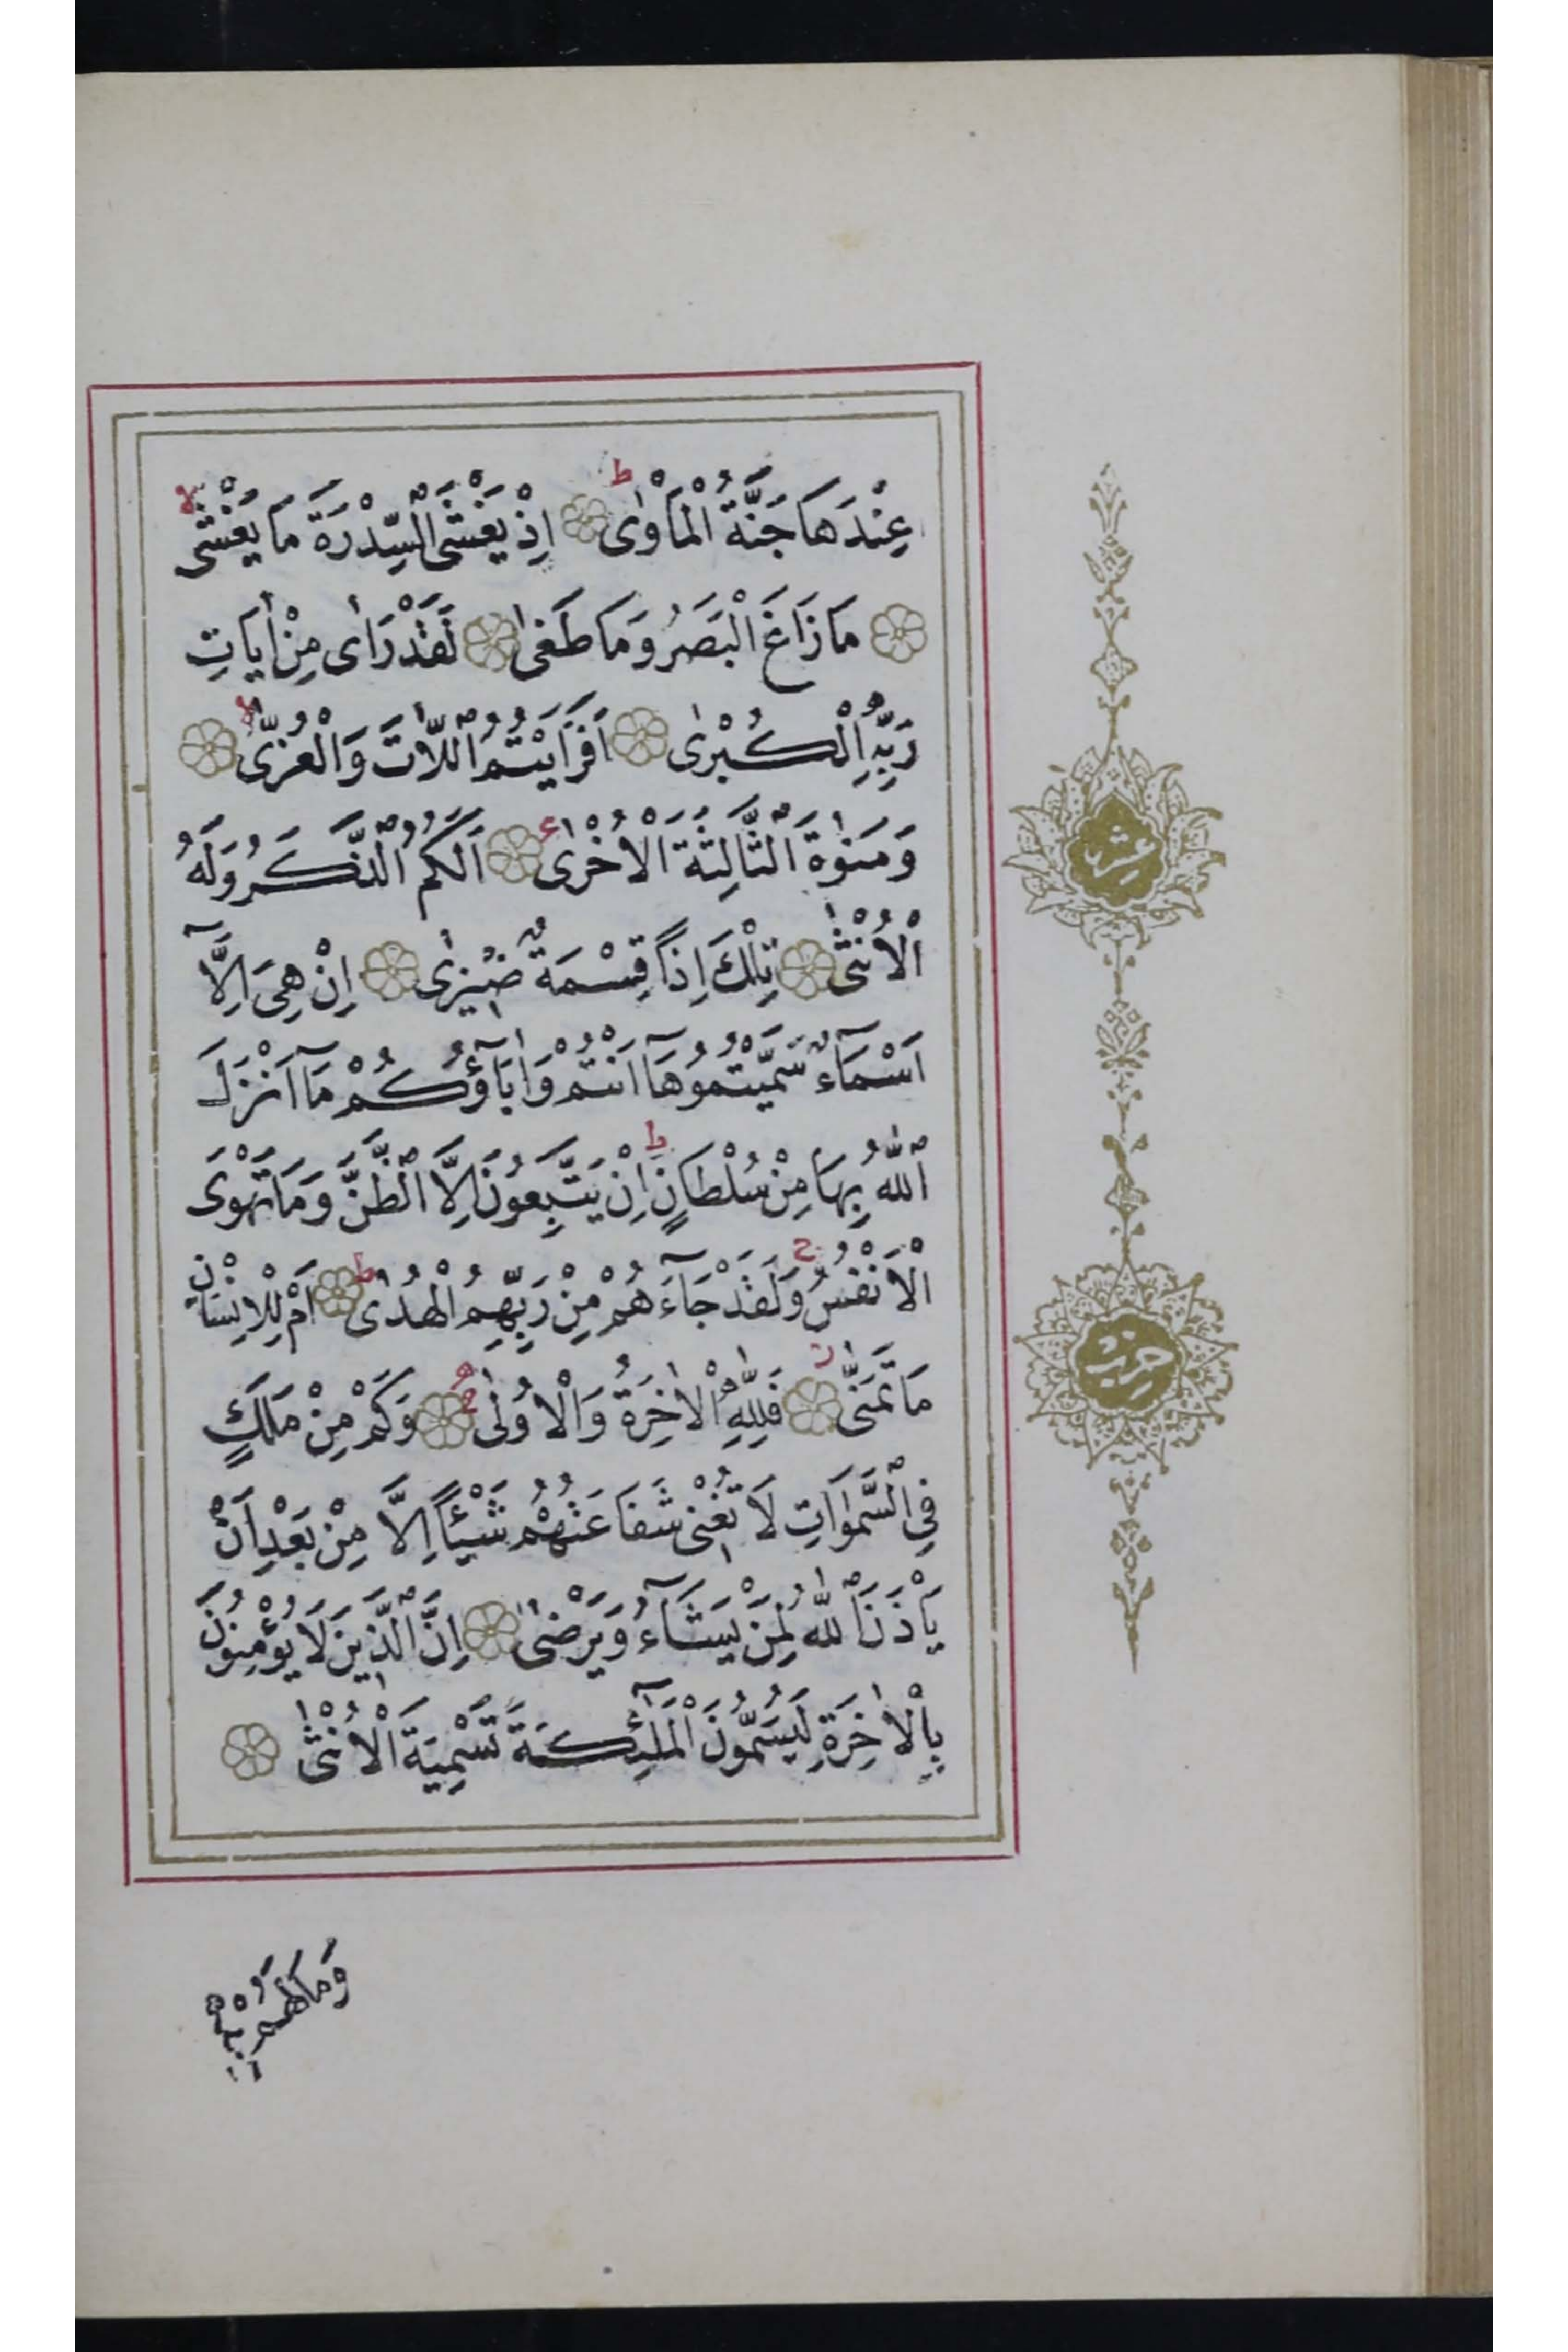 عِنْدَهَا جَنَّةُ الْمَأْوٰى ط اِذْ يَغْشَى السِّدْرَةَ مَا يَغْشٰى لا
مَا زَاغَ الْبَصَرُ وَمَا طَغٰى لَقَدْ رَاٰى مِنْ اٰيَاتِ
رَبِّهِ الْكُبْرٰى اَفَرَاَيْتُمُ اللَّاتَ وَالْعُزّٰى لا
وَمَنٰوةَ الثَّالِثَةَ الْاُخْرٰى اَلَكُمُ الذَّكَرُ وَلَهُ
الْاُنْثٰى تِلْكَ اِذًا قِسْمَةٌ ضِيزٰى اِنْ هِىَ اِلَّٓا
اَسْمَٓاءٌ سَمَّيْتُمُوهَٓا اَنْتُمْ وَاٰبَٓاؤُكُمْ مَٓا اَنْزَلَ
اللّٰهُ بِهَا مِنْ سُلْطَانٍ ط اِنْ يَتَّبِعُونَ اِلَّا الظَّنَّ وَمَا تَهْوَى
الْاَنْفُسُ ج وَلَقَدْ جَٓاءَهُمْ مِنْ رَبِّهِمُ الْهُدٰى ط اَمْ لِلْاِنْسَانِ
مَا تَمَنّٰى ز فَلِلّٰهِ الْاٰخِرَةُ وَالْاُولٰى وَكَمْ مِنْ مَلَكٍ
فِى السَّمٰوَاتِ لَا تُغْنِى شَفَاعَتُهُمْ شَيْئًا اِلَّا مِنْ بَعْدِ اَنْ
يَاْذَنَ اللّٰهُ لِمَنْ يَشَٓاءُ وَيَرْضٰى اِنَّ الَّذِينَ لَا يُؤْمِنُونَ
بِالْاٰخِرَةِ لَيُسَمُّونَ الْمَلٰٓئِكَةَ تَسْمِيَةَ الْاُنْثٰى
وَمَا لَهُمْ بِهِ
عشر
حزب